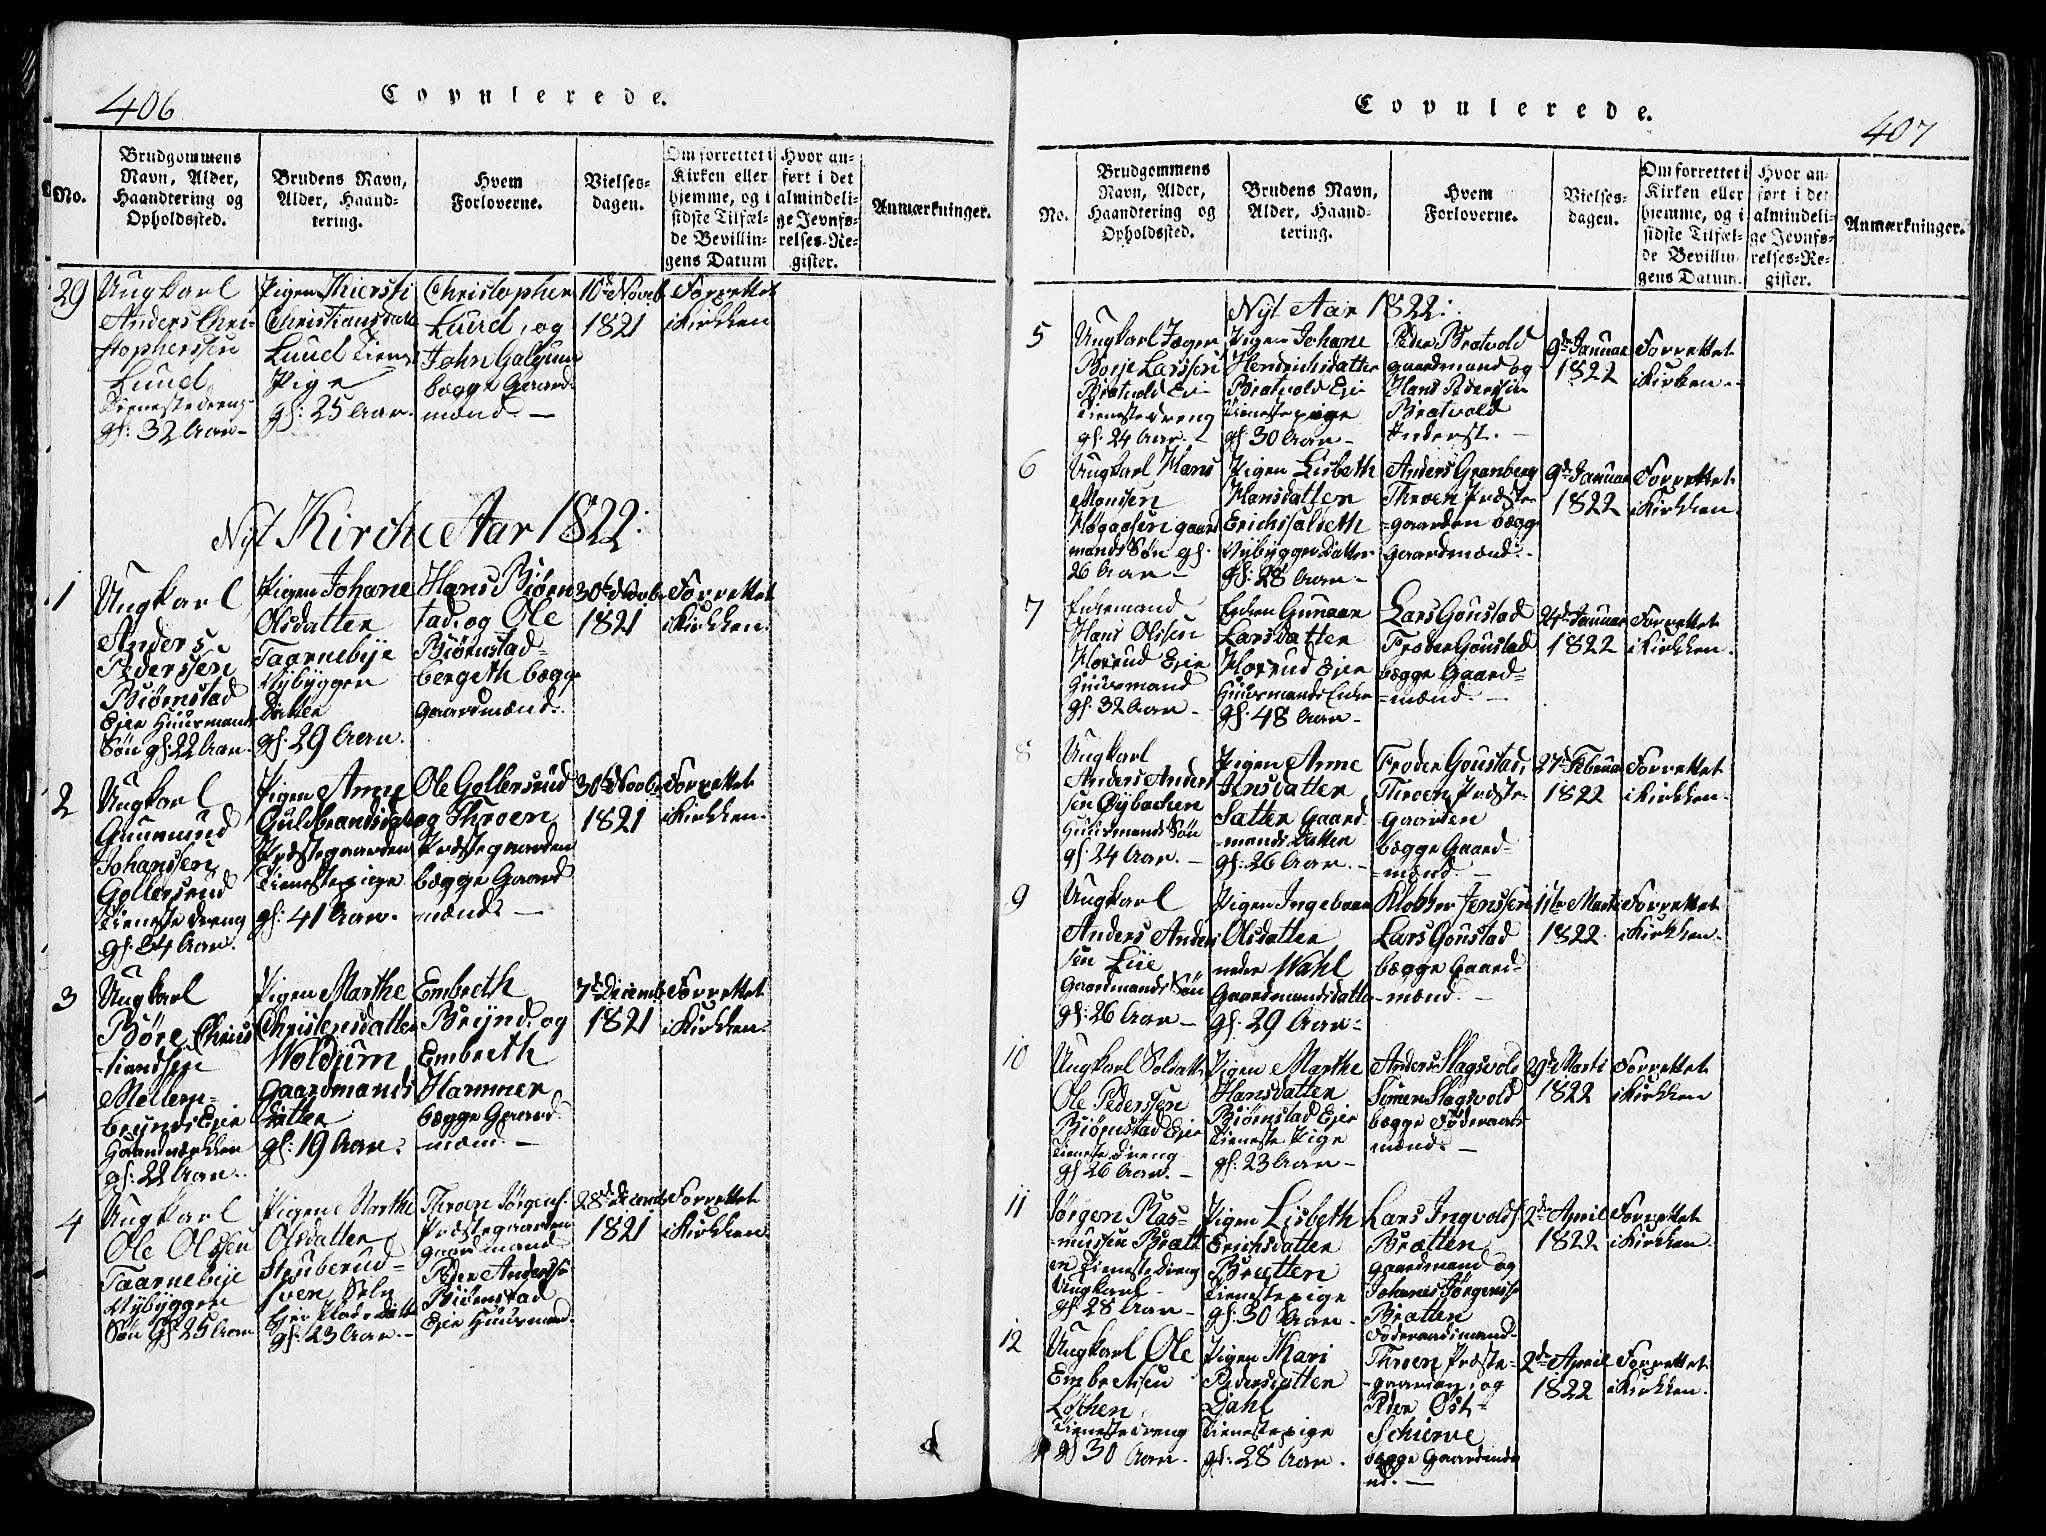 406
Copulerede.
No.
Brudgommens
Navn, Alder,
Haandtering og
Opholdssted.
Brudens Navn,
Alder, Haand-
tering.
Hvem
Forloverne.
Vielses-
dagen.
Om forrettet i
Kirken eller
hjemme, og i
sidste Tilfæl-
de Bevillin-
gens Datum
Hvor an-
ført i det
almindeli-
ge Jevnfø-
relses-Re-
gister.
Anmærkninger.
29
Ungkarl
Anders Chri-
stopherssen
Lund
Tienestedreng
gl: 32 Aar
Pigen Kiersti
Christiansdatt
Lund Tieneste
Pige
gl: 25 Aar.
Christopher
Lund, og
John Galgum
begge Gaard-
mænd.
10de Novbr
1821
Forrettet
i Kirkken
Nyt Kirche Aar 1822:
1
Ungkarl
Anders
Pederssen
Biørnstad
Eje Huusmands
Søn gl: 22 Aar.
Pigen Johane
Olsdatter
Taarnebye
Nybygger
Datter
gl. 29 Aar.
Hans Biørn
stad og Ole
Biørnstad-
bergeth begge
Gaardmænd.
30te Novbr
1821
Forrettet
i Kirkken.
2
Ungkarl
Gunmund
Johanssen
Gollersrud
Tieneste dreng
gl. 34 Aar.
Pigen Anne
Guldbrandsdatt
Præstegaarden
Tienestepige
gl: 41 Aar.
Ole Gollersrud
og Throen
Præstegaarden
begge Gaard
mænd.
30te Novbr
1821
Forrettet
i Kirkken.
3
Ungkarl
Børe Chris
tiandsen
Mellem-
Breynds Eje
Haandværkker
gl: 22 Aar.
Pigen Marthe
Christensdatter
Woldum
Gaardmands
datter
gl: 19 Aar.
Embreth
Breynd. og
Embreth
Hammer
begge Gaard
mænd.
7de Decemb
1821
Forrettet
i Kirkken.
4
Ungkarl
Ole Olssen
Taarnebye
Nybygger
Søn Gl 25 Aar
Pigen Marthe
Olsdatter
Struberud-
sven
Eje Pladsdatter
gl: 23 Aar.
Throen Jørgens.
Præstegaarden
gaardmand
Peder Anderss.
Biørnstad
Eje Huusmand.
28de Decemb
1821
Forrettet
i Kirkken.
407
Copulerede.
No.
Brudgommens
Navn, Alder,
Haandtering og
Opholdssted.
Brudens Navn,
Alder, Haand-
tering.
Hvem
Forloverne.
Vielses-
dagen.
Om forrettet i
Kirken eller
hjemme, og i
sidste Tilfæl-
de Bevillin-
gens Datum.
Hvor an-
ført i det
almindeli-
ge Jevnfø-
relses-Re-
gister.
Anmærkninger.
Nyt Aar 1822:
5
Ungkarl Jæger
Borje Larssen
Bratvold Ei
Tienestedreng
gl. 24 Aar.
Pigen Johane
Hendrichsdatter
Bratvold Eje
Tienestepige
gl 30 Aar
Peder Bratvold
gaardmand og
Hans Pederssen
Bratvold
Inderst.
9de Januar
1822
Forrettet
i Kirken.
6
Ungkarl Hans
Monsen
gaard
mands Søn gl.
26 Aar
Pigen Lisbeth
Hansdatter
Erichssæteth
Nybygger Datter
gl: 28 Aar
Anders Grønberg
Throen Præste-
gaarden begge
gaardmænd.
9de Januar
1822
Forrettet
i Kirkken.
7
Enkemand
Hans Olssen
Horrud Eje
Huusmand
gl. 32 Aar
Enken Gunnar
Larsdatter
Horrud Eje
Huusmands Enke
gl. 48 Aar
Lars Goustad
Froder Goustad
begge Gaard-
mænd.
24de Januar
1822
Forrettet
i Kirkken.
8
Ungkarl
Anders Anders
sen Øybachen
Huusmands Søn
gl. 24 Aar.
Pigen Anne
Jensdatter
Satter Gaard
mands Datter
gl: 26 Aar.
Froder Goustad,
Throen Præste
gaarden
begge Gaard-
mænd.
27de Februar
1822
Forrettet
i Kirkken.
9
Ungkarl
Anders Anders
sen Lie
Gaardmands Søn
gl. 26 Aar
Pigen Ingeboer
Olsdatter
nedre Wahl
Gaardmandsdatter
gl. 29 Aar
Klokker Jenssen
Lars Goustad
begge Gaard-
mænd.
11te Marti
1822.
Forrettet
i Kirkken.
10
Ungkarl Soldatt
Ole Pederssen
Biørnstad Eje
Tieneste dreng
gl 26 Aar.
Pigen Marthe
Hansdatter
Biørnstad Eje
Tieneste Pige
gl: 23 Aar
Anders Slagsvold
Simen Slagsvold
begge Føderaads
mænd.
29de Marti
1822
Forrettet
i Kirkken
11
Jørgen Ras-
mussen Brætt
en Tienestedreng
Ungkarl
gl. 28 Aar
Pigen Lisbeth
Erichsdatter
Brætten
Tienestepige
gl. 30 Aar.
Lars Ingvolds
Brætten
gaardmand og
Johanes Jørgenss
Brætten
Føderaadsmand
2de April
1822
Forrettet
i Kirkken.
12
Ungkarl Ole
Embretssen
Løchen
Tienestedreng
gl 30 Aar.
Pigen Kari
Pedersdatter
Dahl
Tienestepige
gl. 28 Aar.
Throen Præste-
gaarden, og
Peder Øst-
Schierve
begge Gaardmæ
nd.
2de April
1822
Forrettet
i Kirkken.